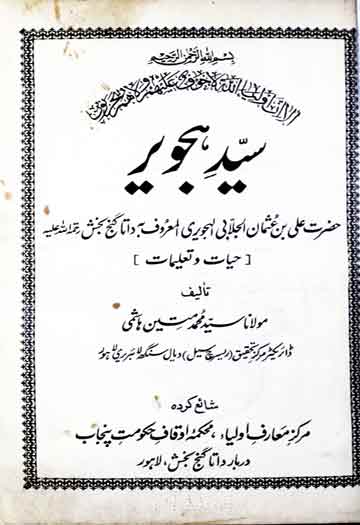 بسم اللہ الرحمن الرحیم
الا ان اولیاء اللہ لا خوف علیهم ولا هم یحزنون
سیّدِ ہجویر
حضرت علی بن عثمان الجلابی الہجویری المعروف بہ داتا گنج بخش رحمۃ اللہ علیہ
[ حیات و تعلیمات ]
تالیف
مولانا سید محمد متین ہاشمی
ڈائریکٹر مرکز تحقیق (ریسرچ سیل) دیال سنگھ لائبریری لاہور
شائع کردہ
مرکز معارف اولیاء، محکمہ اوقاف حکومت پنجاب
دربار داتا گنج بخش، لاہور